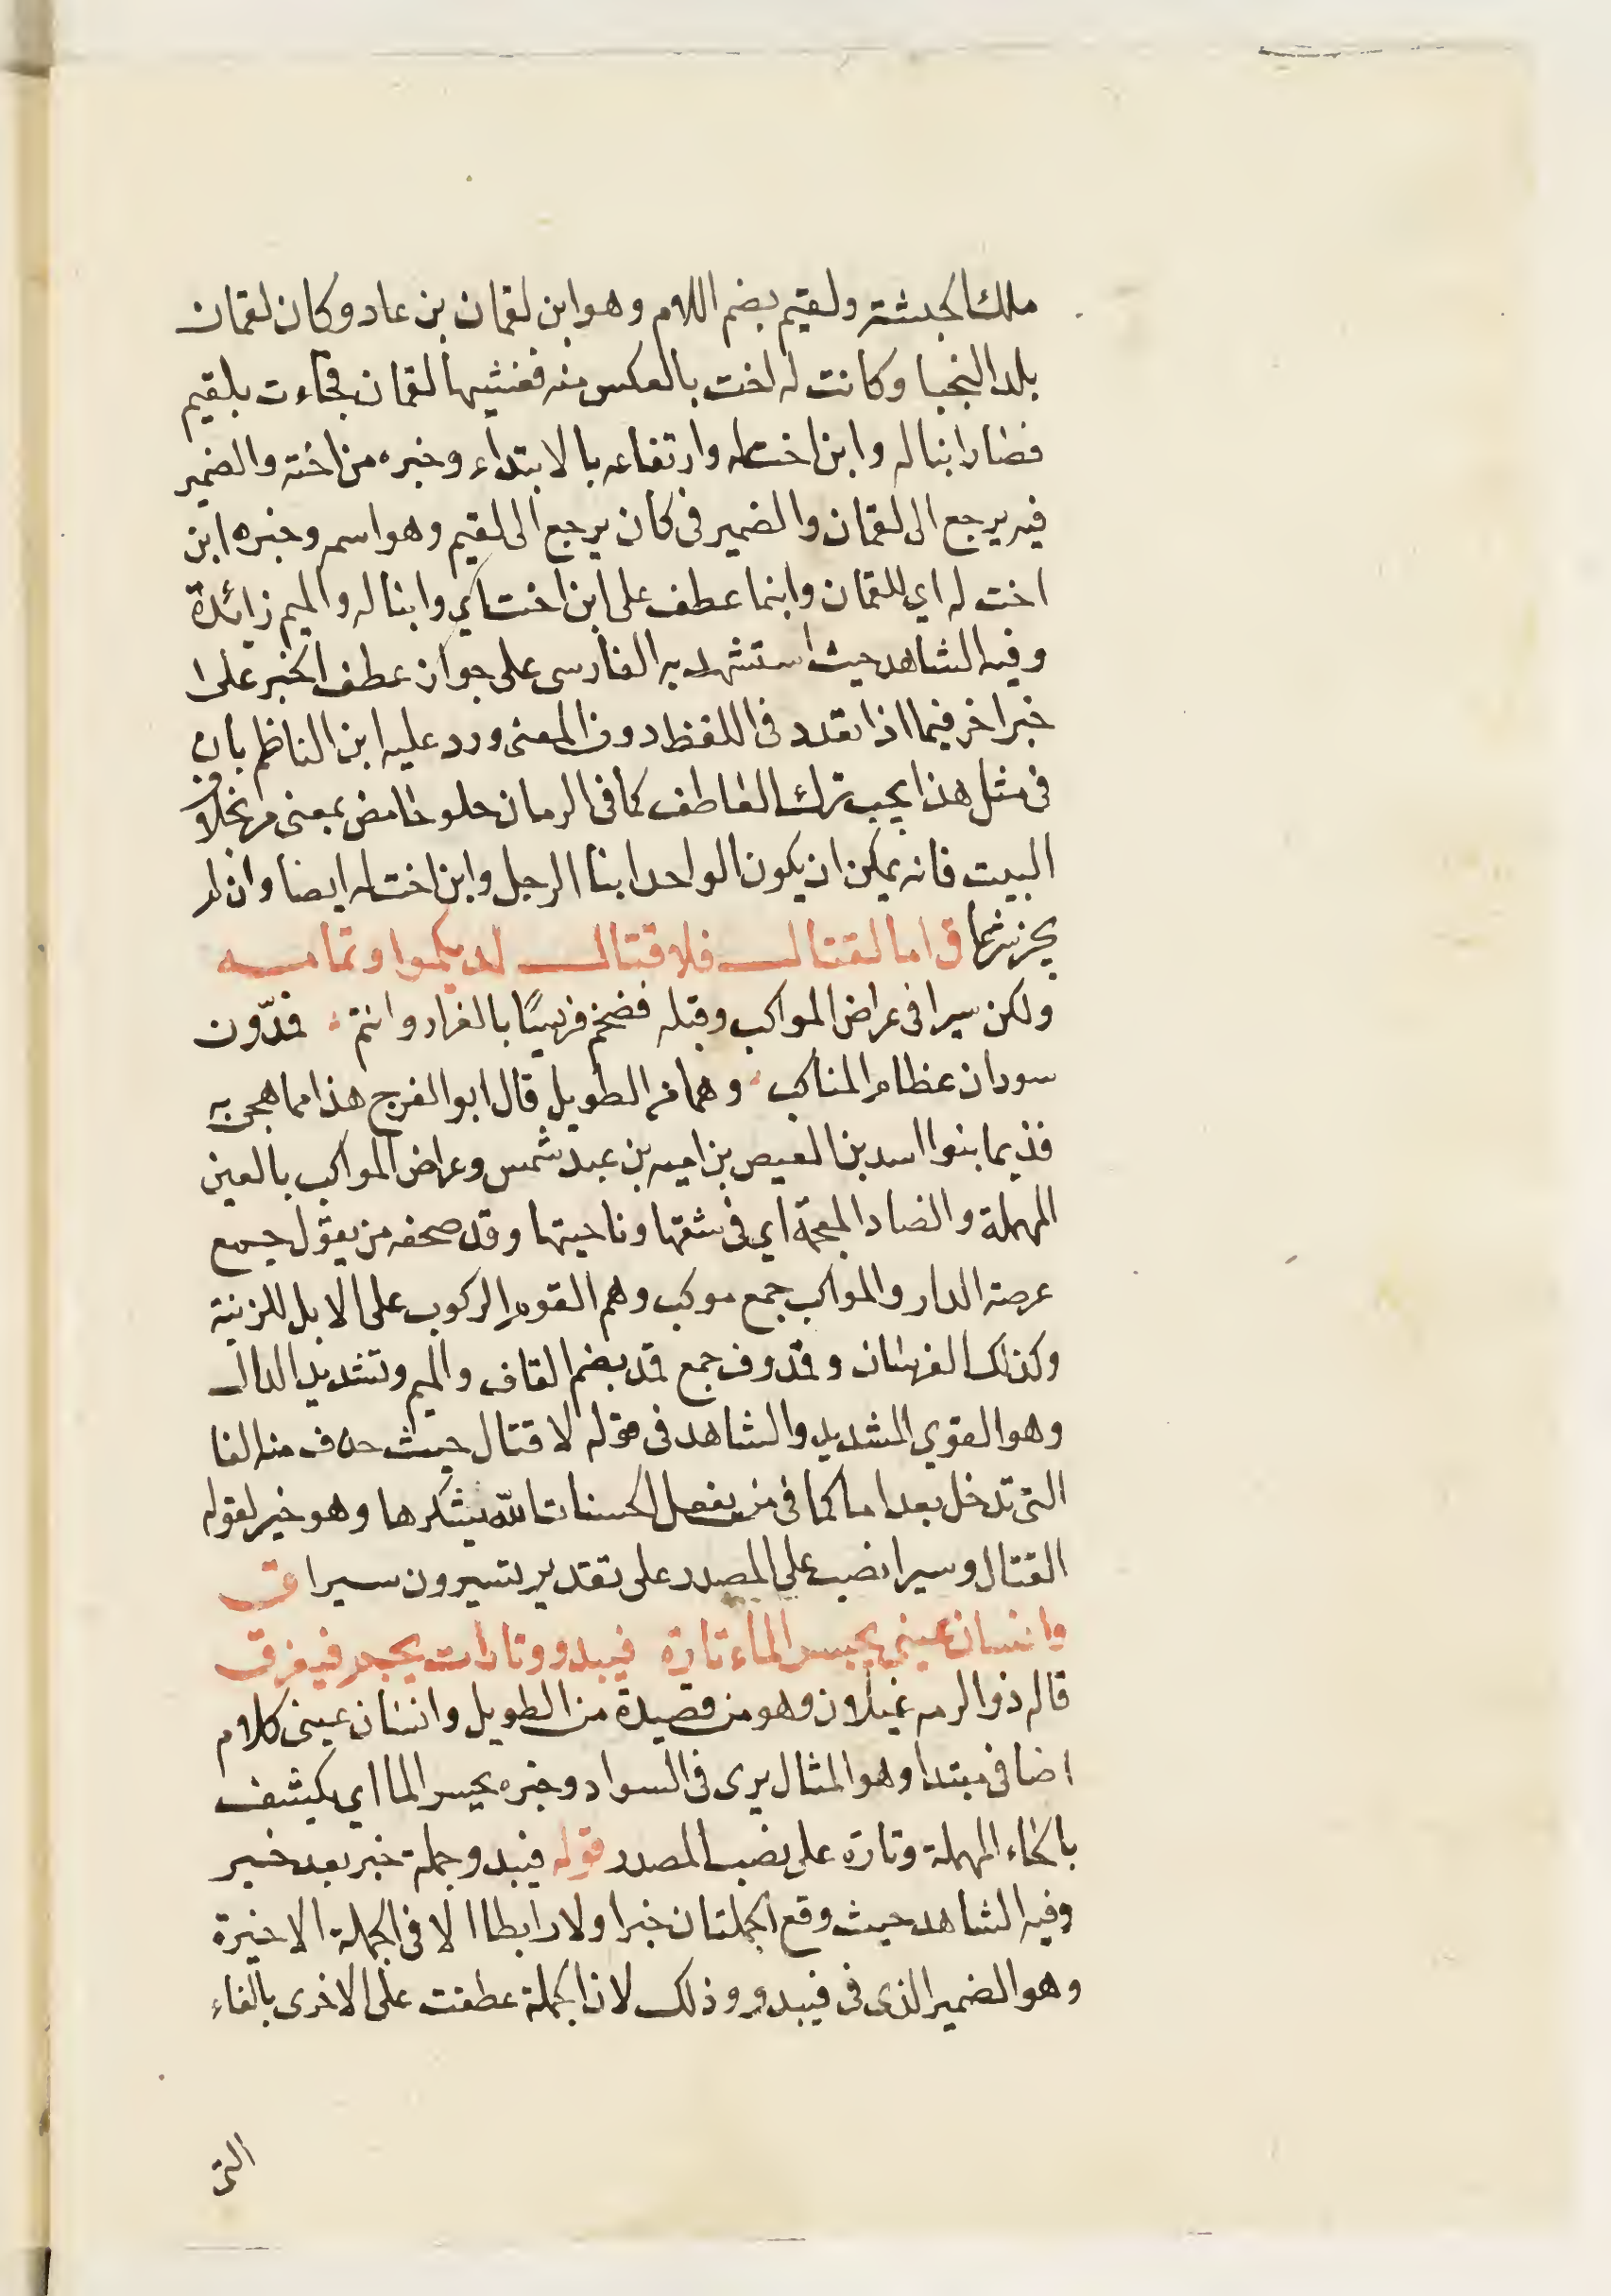 ملك الحبشة ولقيم بضم اللام وهو ابن لقمان بن عاد وكان لقمان
يلد النجبا وكانت له اخت بالعكس منه فغشيها لقمان فجاءت بلقيم
فصار ابنا له وابن اخت له وارتفاعه بالابتداء وخبره من اخته والضمير
فيه يرجع الى لقمان والضمير في كان يرجع الى لقيم وهو اسم وخبره ابن
اخت له اي للقمان وابنما عطف على ابن اخت اي وابنا له والميم زائدة
وفيه الشاهد حيث استشهد به الفارسى على جواز عطف الخبر على
خبر اخر فيما اذا تعدد في اللفظ دون المعنى ورد عليه ابن الناظم بان
في مثل هذا يجب ترك العاطف كما في الرمان حلو حامض بمعنى مز بخلاف
البيت فانه يمكن ان يكون الواحد ابنا الرجل وابن اخت له ايضا وان لم
يجز شرعا ق اما القتال فلا قتال لديكموا وتمامه
ولكن سيرا في عراض المواكب وقبله فضحتم قريشا بالفرار وانتم قمدّون
سودان عظام المناكب وهما من الطويل قال ابو الفرج هذا مما هجى به
قديما بنوا اسد بن العيص بن اميه بن عبد شمس وعراض المواكب بالعين
المهملة والضاد المعجمة اي في شقها وناحيتها وقد صحفه من يقول جمع
عرصة الدار والمواكب جمع موكب وهم القوم الركوب على الابل للزينة
وكذلك الفرسان وقمدون جمع قمد بضم القاف والميم وتشديد الدال
وهو القوي الشديد والشاهد في قوله لا قتال حيث حذف منه الفا
التى تدخل بعد اما كما في من يفعل الحسنات الله يشكرها وهو خبر لقوله
القتال وسيرا نصب على المصدر على تقدير تسيرون سيرا ق
وانسان عينى يحسر الماء تارة فيبدو وتارات يجم فيغرق
قاله ذوا الرمه غيلان وهو من قصيدة من الطويل وانسان عينى كلام
اضافى مبتدا وهو المثال يرى في السواد وخبره يحسر الما اي يكشف
بالحاء المهملة وتارة على نصب المصدر قوله فيبدو جملة خبر بعد خبر
وفيه الشاهد حيث وقع الجملتان خبرا ولا رابطا الا في الجملة الاخيرة
وهو الضمير الذى في فيبدو وذلك لان الجملة عطفت على الاخرى بالفاء
التى